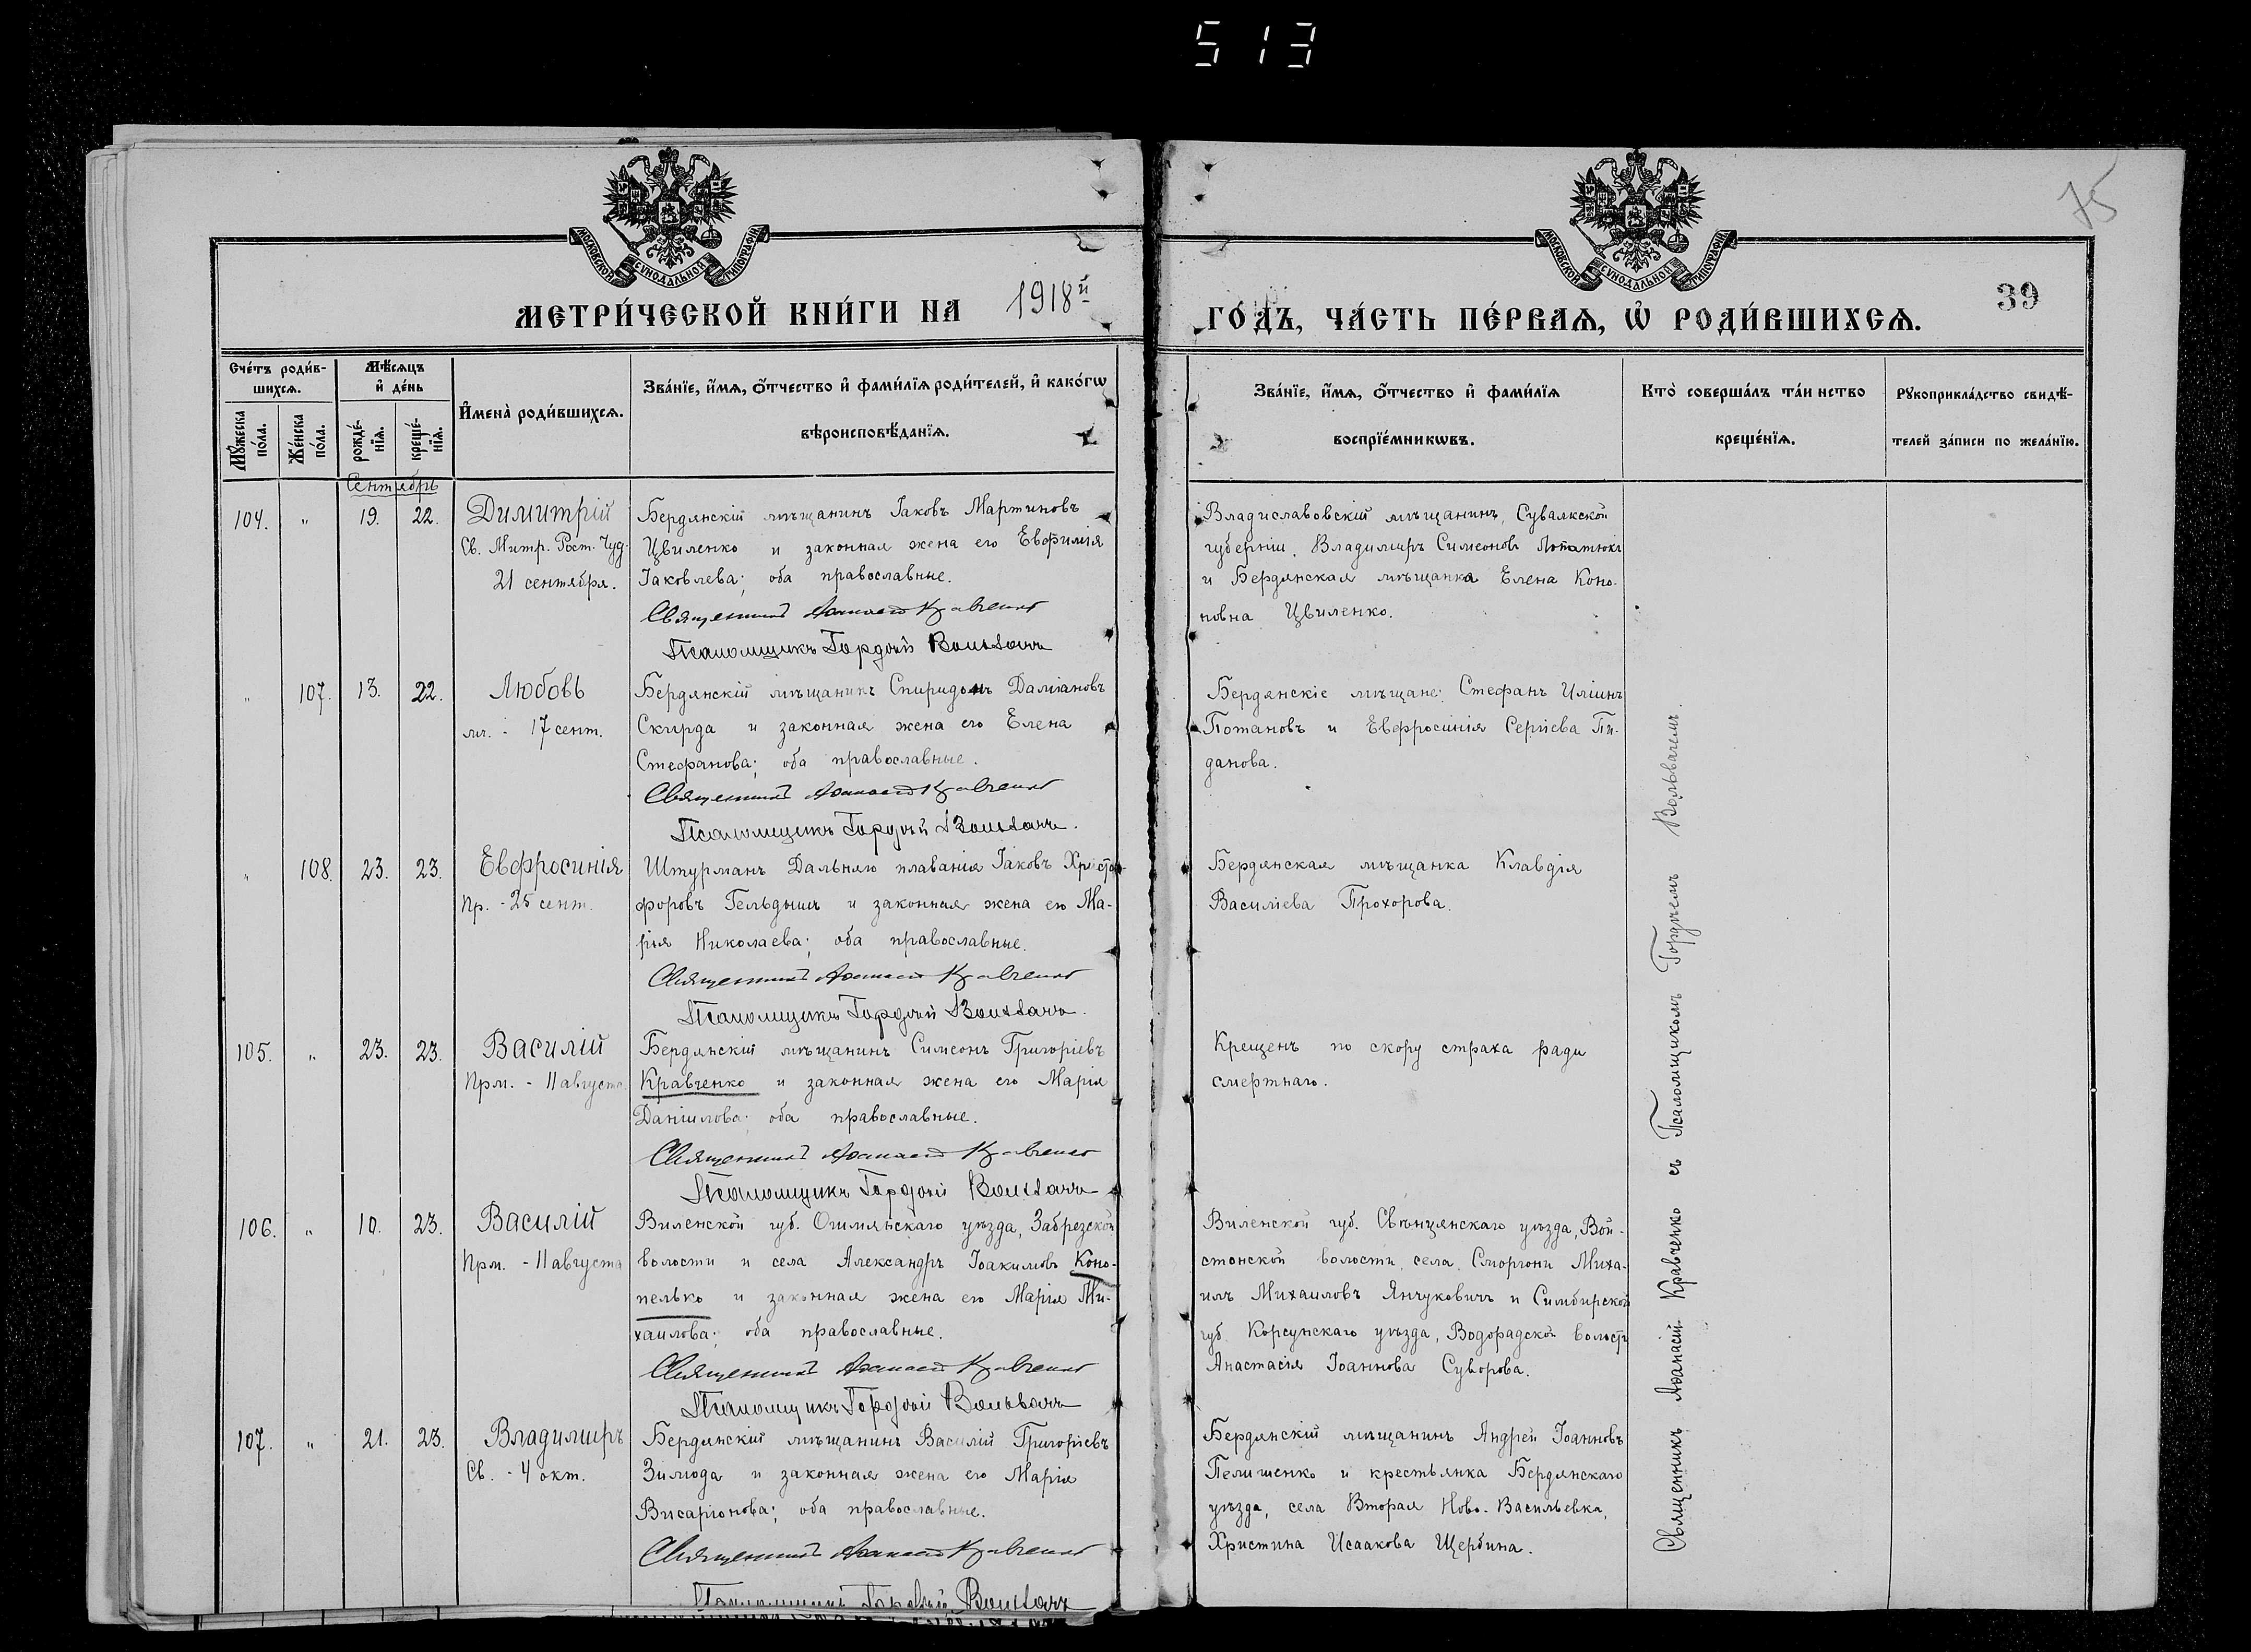 513
75
МОСКОВСКОЙ СѴНОДАЛЬНОЙ ТИПОГРАФІИ
МОСКОВСКОЙ СѴНОДАЛЬНОЙ ТИПОГРАФІИ
МЕТРИ́ЧЕСКОЙ КНИ́ГИ НА 1918й ГО́ДЪ, ЧА́СТЬ ПЕ́РВАѦ, Ѡ҆ РОДИ́ВШИХСѦ.
39
Сче́тъ роди́в-
шихсѧ.
Мꙋ́жеска
по́ла.
Же́нска
по́ла.
Мѣ́сѧцъ
и҆ де́нь
рожде́-
нїѧ.
креще́-
нїѧ.
И҆мена̀ роди́вшихсѧ.
Зва́нїе, и҆́мѧ, ѻ҆́тчество и҆ фами́лїѧ роди́телей, и҆ како́гѡ
вѣроисповѣ́данїѧ.
Зва́нїе, и҆́мѧ, ѻ҆́тчество и҆ фами́лїѧ
воспрїе́мникѡвъ.
Кто̀ соверша́лъ та́инство
креще́нїѧ.
Рꙋкоприкла́дство свидѣ́-
телей за́писи по жела́нїю.
Сентябрь
104. " 19. 22. Димитрій
Св. Митр. Рост. Чуд.
21 сентября.
Бердянскій мѣщанинъ Іаковъ Мартиновъ
Цвиленко и законная жена его Евфимія
Іаковлева; оба православные.
Священникъ Аѳанасій Кравченко
Псаломщикъ Гордѣй Вольвачъ
Владиславовскій мѣщанинъ, Сувалкской
губерніи, Владимиръ Симеоновъ
и Бердянская мѣщанка Елена Коно-
новна Цвиленко.
" 107. 13. 22. Любовь
мч. - 17 сент.
Бердянскій мѣщанинъ Спиридонъ Даміановъ
Скирда и законная жена его Елена
Стефанова; оба православные.
Священникъ Аѳанасій Кравченко
Псаломщикъ Гордѣй Вольвачъ.
Бердянскіе мѣщане: Стефанъ Иліинъ
Потаповъ и Евфросинія Сергіева Пи-
данова.
" 108. 23. 23. Евфросинія
Пр. - 25 сент.
Штурманъ Дальняго плаванія Іаковъ Христо-
форовъ Гельдышъ и законная жена его Ма-
рія Николаева; оба православные.
Священникъ Аѳанасій Кравченко
Псаломщикъ Гордѣй Вольвачъ.
Бердянская мѣщанка Клавдія
Василіева Прохорова.
105. " 23. 23. Василій
Прм. - 11 августа
Бердянскій мѣщанинъ Симеонъ Григоріевъ
Кравченко и законная жена его Марія
Даніилова; оба православные.
Священникъ Аѳанасій Кравченко
Псаломщикъ Гордѣй Вольвачъ
Крещенъ по скору страха ради
смертнаго.
106. " 10. 23. Василій
Прм. - 11 августа
Виленской губ. Ошмянскаго уѣзда, Забрезской
волости и села Александръ Іоакимовъ Коно-
пелько и законная жена его Марія Ми-
хаилова; оба православные.
Священникъ Аѳанасій Кравченко
Псаломщикъ Гордѣй Вольвачъ
Виленской губ. Свѣнцянскаго уѣзда, Вой-
стомской волости, села Сморгони Миха-
илъ Михаиловъ Янчуковичъ и Симбирской
губ. Корсунскаго уѣзда, Водорадской волости
Анастасія Іоаннова Суворова.
107. " 21. 23. Владимиръ
Св. - 4 окт.
Бердянскій мѣщанинъ Василій Григоріевъ
Зимода и законная жена его Марія
Висаріонова; оба православные.
Священникъ Аѳанасій Кравченко
Псаломщикъ Гордѣй Вольвачъ
Бердянскій мѣщанинъ Андрей Іоанновъ
Пелишенко и крестьянка Бердянскаго
уѣзда, села Вторая Ново-Васильевка,
Христина Исаакова Щербина.
Священникъ Аѳанасій Кравченко съ Псаломщикомъ Гордѣемъ Вольвачемъ.